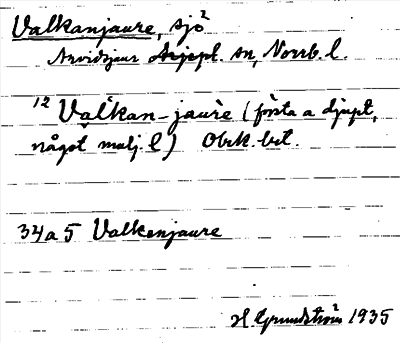 Valkanjaure, sjö 2
Arvidsjaur Arjepl. sn, Norrb. l.
12 Val̆kan-jaure (första a djupt,
något mulj. l) Obek. bet.
34a5 Valkenjaure
H. Grundström 1935